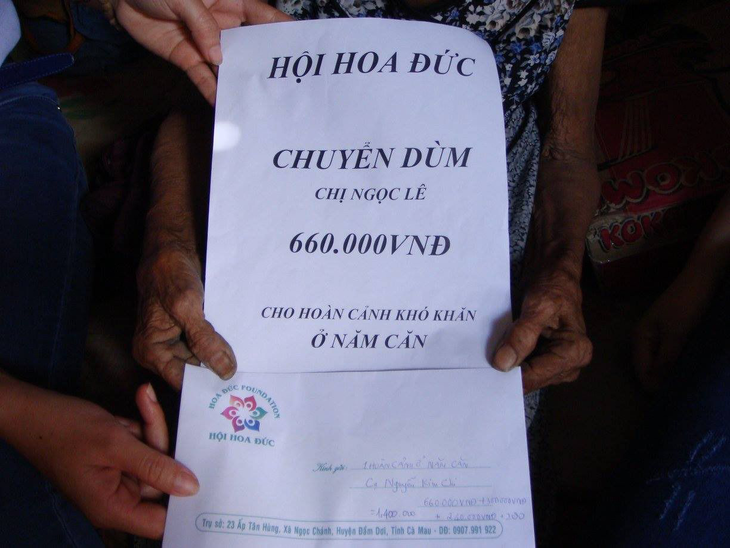 HỘI HOA ĐỨC
CHUYỂN DÙM
CHỊ NGỌC LÊ
660.000VNĐ
CHO HOÀN CẢNH KHÓ KHĂN
Ở NĂM CĂN
HOA ĐỨC FOUNDATION
HỘI HOA ĐỨC
Kính gửi: 1 HOÀN CẢNH Ở NĂM CĂN
Cụ Nguyễn Kim Chi
660.000VNĐ
=1,400.000
Trụ sở: 23 Ấp Tân Hùng, Xã Ngọc Chánh, Huyện Đầm Dơi, Tỉnh Cà Mau - DĐ: 0907.991 922